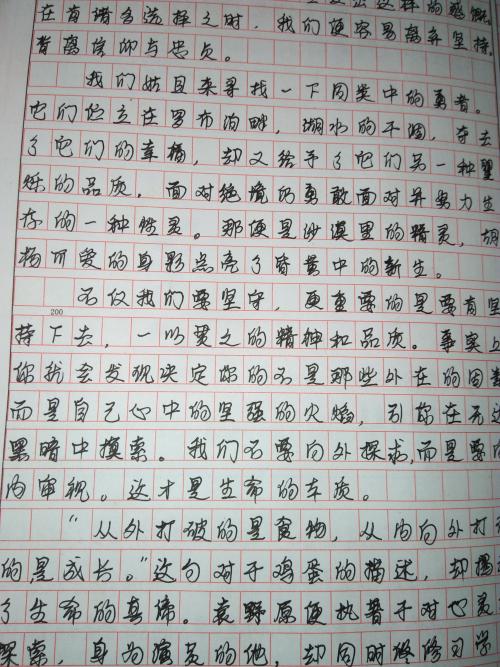 在有诸多选择之时，我们便容易离弃坚持，
背离信仰与忠贞。
我们姑且来寻找一下同类中的勇者。
它们伫立在罗布泊畔，湖水的干涸，夺去
了它们的幸福，却又给予了它们另一种璧
烁的品质，面对绝境的勇敢面对并努力生
存的一种性灵。那便是沙漠里的精灵，胡
杨可爱的身影点亮了昏黄中的新生。
不仅我们要坚守，更重要的是要有坚
200
持下去，一以贯之的精神和品质。事实上
你就会发现决定你的不是那些外在的因素
而是自己心中的坚强的火焰，引你在无边
黑暗中摸索。我们不要向外探求，而是要向
内审视。这才是生命的本质。
“从外打破的是食物，从内向外打破
的是成长。”这句对于鸡蛋的描述，却揭
了生命的真谛。袁野原便执着于对心灵
探索，身为演员的他，却同时修习学